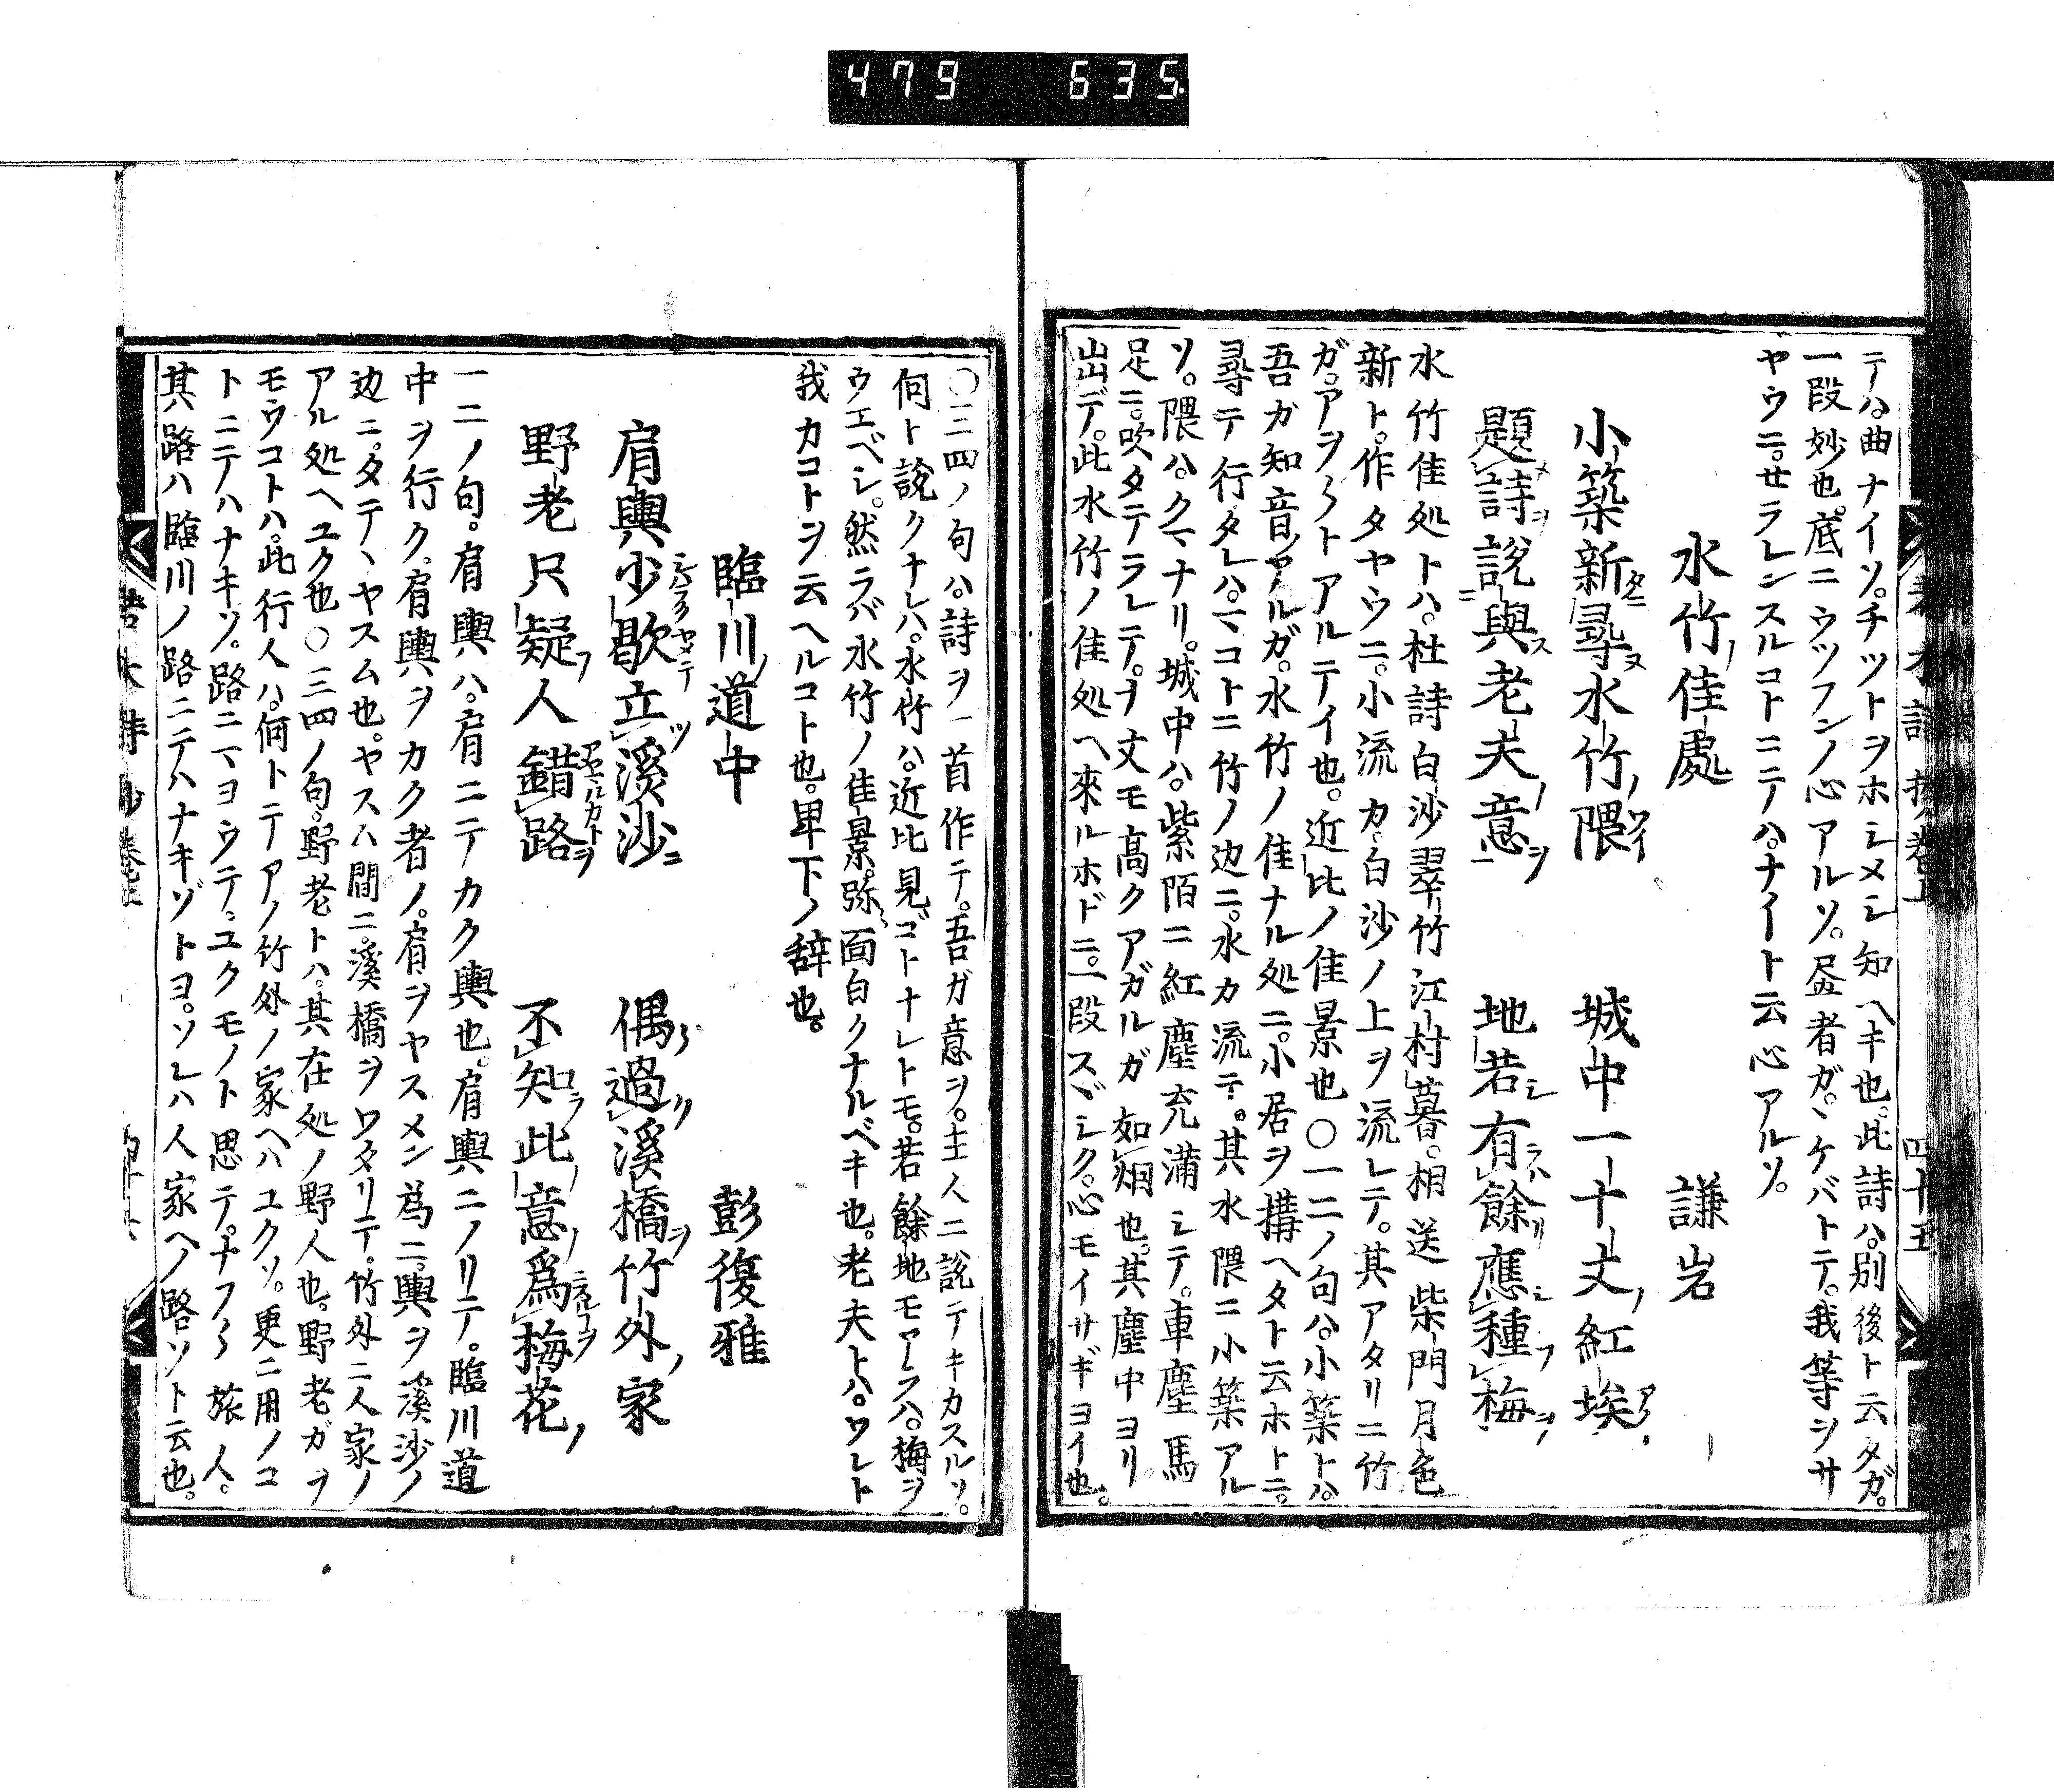 479 635
テハ。曲ナイソ。チツトヲホシメシ知ヘキ也。此詩ハ。別後ト云タガ。
一段妙也。底ニウツフンノ心アルソ。盗者ガ。ヽケバトテ。我等ヲサ
ヤウニ。せラレンスルコトニテハ。ナイト云心アルソ。
水竹佳處 謙岩
小築新尋水竹隈 城中一十丈紅埃
題詩說與老夫意 地若有餘應種梅
水竹佳処トハ。杜詩白沙翠竹江村暮。相送柴門月色
新ト。作タヤウニ。小流カ白沙ノ上ヲ流レテ。其アタリニ竹
ガ。アヲ〱トアルテイ也。近比ノ佳景也〇一二ノ句ハ。小築トハ。
吾ガ知音ヤルガ。水竹ノ佳ナル処ニ。小居ヲ構ヘタト云ホトニ。
尋テ行タレハ。マコトニ竹ノ边ニ。水カ流テ。其水隈ニ小築アル
ソ。隈ハ。クマナリ。城中ハ。紫陌ニ紅塵充滿シテ。車塵馬
足ニ。吹タテラレテ。十丈モ高クアガルガ如烟也。其塵中ヨリ
出デ。此水竹ノ佳処ヘ來ルホドニ。一段スヾシク。心モイサギヨイ也。
〇三四ノ句ハ。詩ヲ一首作テ。吾ガ意ヲ。主人ニ說テキカスルソ。
何ト說クナレハ。水竹ハ。近比見ゴトナレトモ。若餘地モアラハ。梅ヲ
ウエベシ。然ラバ水竹ノ佳景。弥〻面白クナルベキ也。老夫トハ。ワレト
我カコトヲ云ヘルコト也。卑下ノ辞也。
臨川道中 彭復雅
肩輿少歇立溪沙 偶過溪橋竹外家
野老只疑人錯路 不知此意爲梅花
一二ノ句。肩輿ハ。肩ニテカク輿也。肩輿ニノリテ。臨川道
中ヲ行ク。肩輿ヲカク者ノ。肩ヲヤスメン為ニ。輿ヲ溪沙ノ
边ニ。タテヽヤスム也。ヤスム間ニ。溪橋ヲワタリテ。竹外ニ人家ノ
アル処ヘユク也〇三四ノ句。野老トハ。其在処ノ野人也。野老ガヲ
モウコトハ。此行人ハ。何トテアノ竹外ノ家ヘハユクソ。更ニ用ノコ
トニテハナキソ。路ニマヨウテ。ユクモノト思テ。ナフ〱旅人。
其路ハ臨川ノ路ニテハナキゾトヨ。ソレハ人家ヘノ路ソト云也。